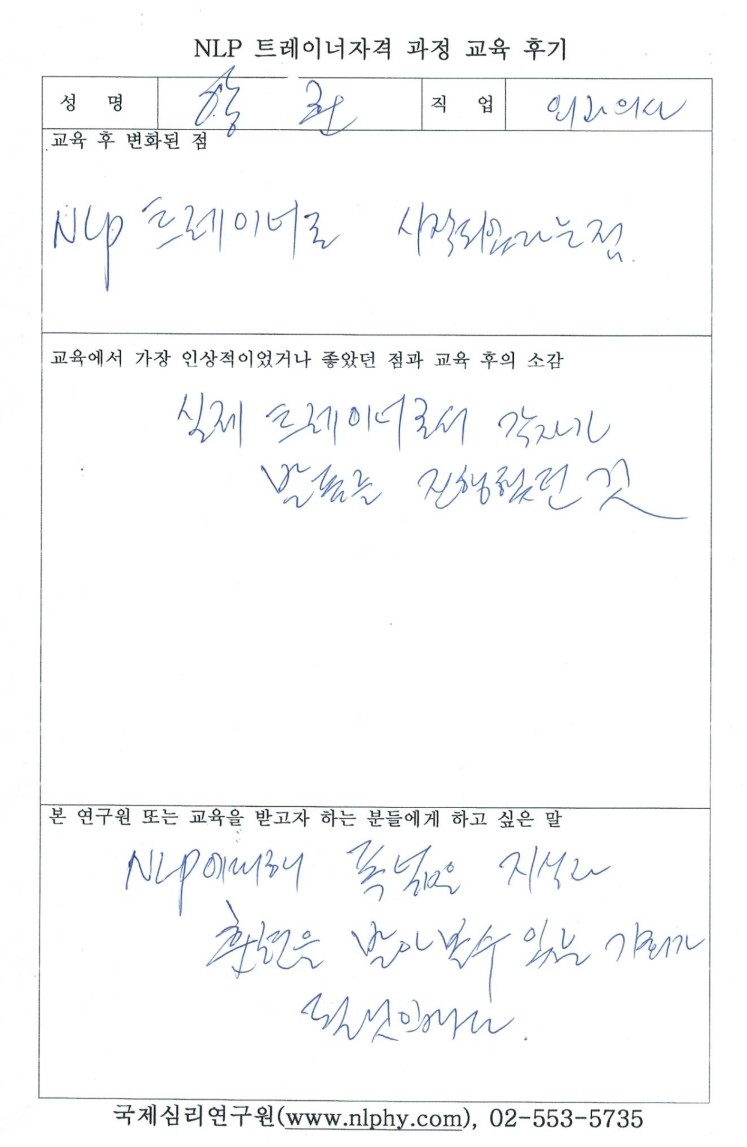 NLP 트레이너자격 과정 교육 후기
성 명
직 업 외과의사
교육 후 변화된 점
NLP 트레이너로 시작되었다는점.
교육에서 가장 인상적이었거나 좋았던 점과 교육 후의 소감
실제 트레이너로서 각자가
발표를 진행했던 것
본 연구원 또는 교육을 받고자 하는 분들에게 하고 싶은 말
NLP에대해 폭넓은 지식과
훈련을 받아볼수 있는 기회가
될것입니다.
국제심리연구원(www.nlphy.com), 02-553-5735